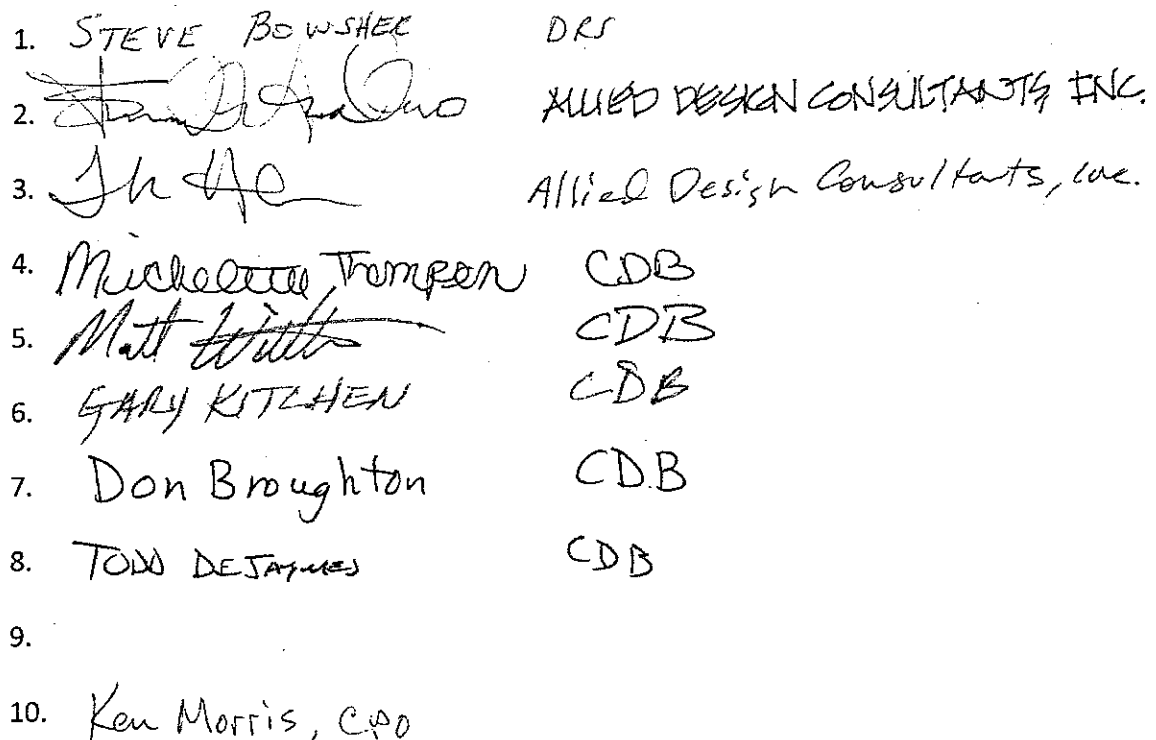 1. STEVE BOWSHER DRS
2. ALLIED DESIGN CONSULTANTS, INC.
3. Allied Design Consultants, Inc.
4. Thompson CDB
5. Matt CDB
6. GARY KITCHEN CDB
7. Don Broughton CDB
8. TODD DEJAYNES CDB
9.
10. Ken Morris, CPO